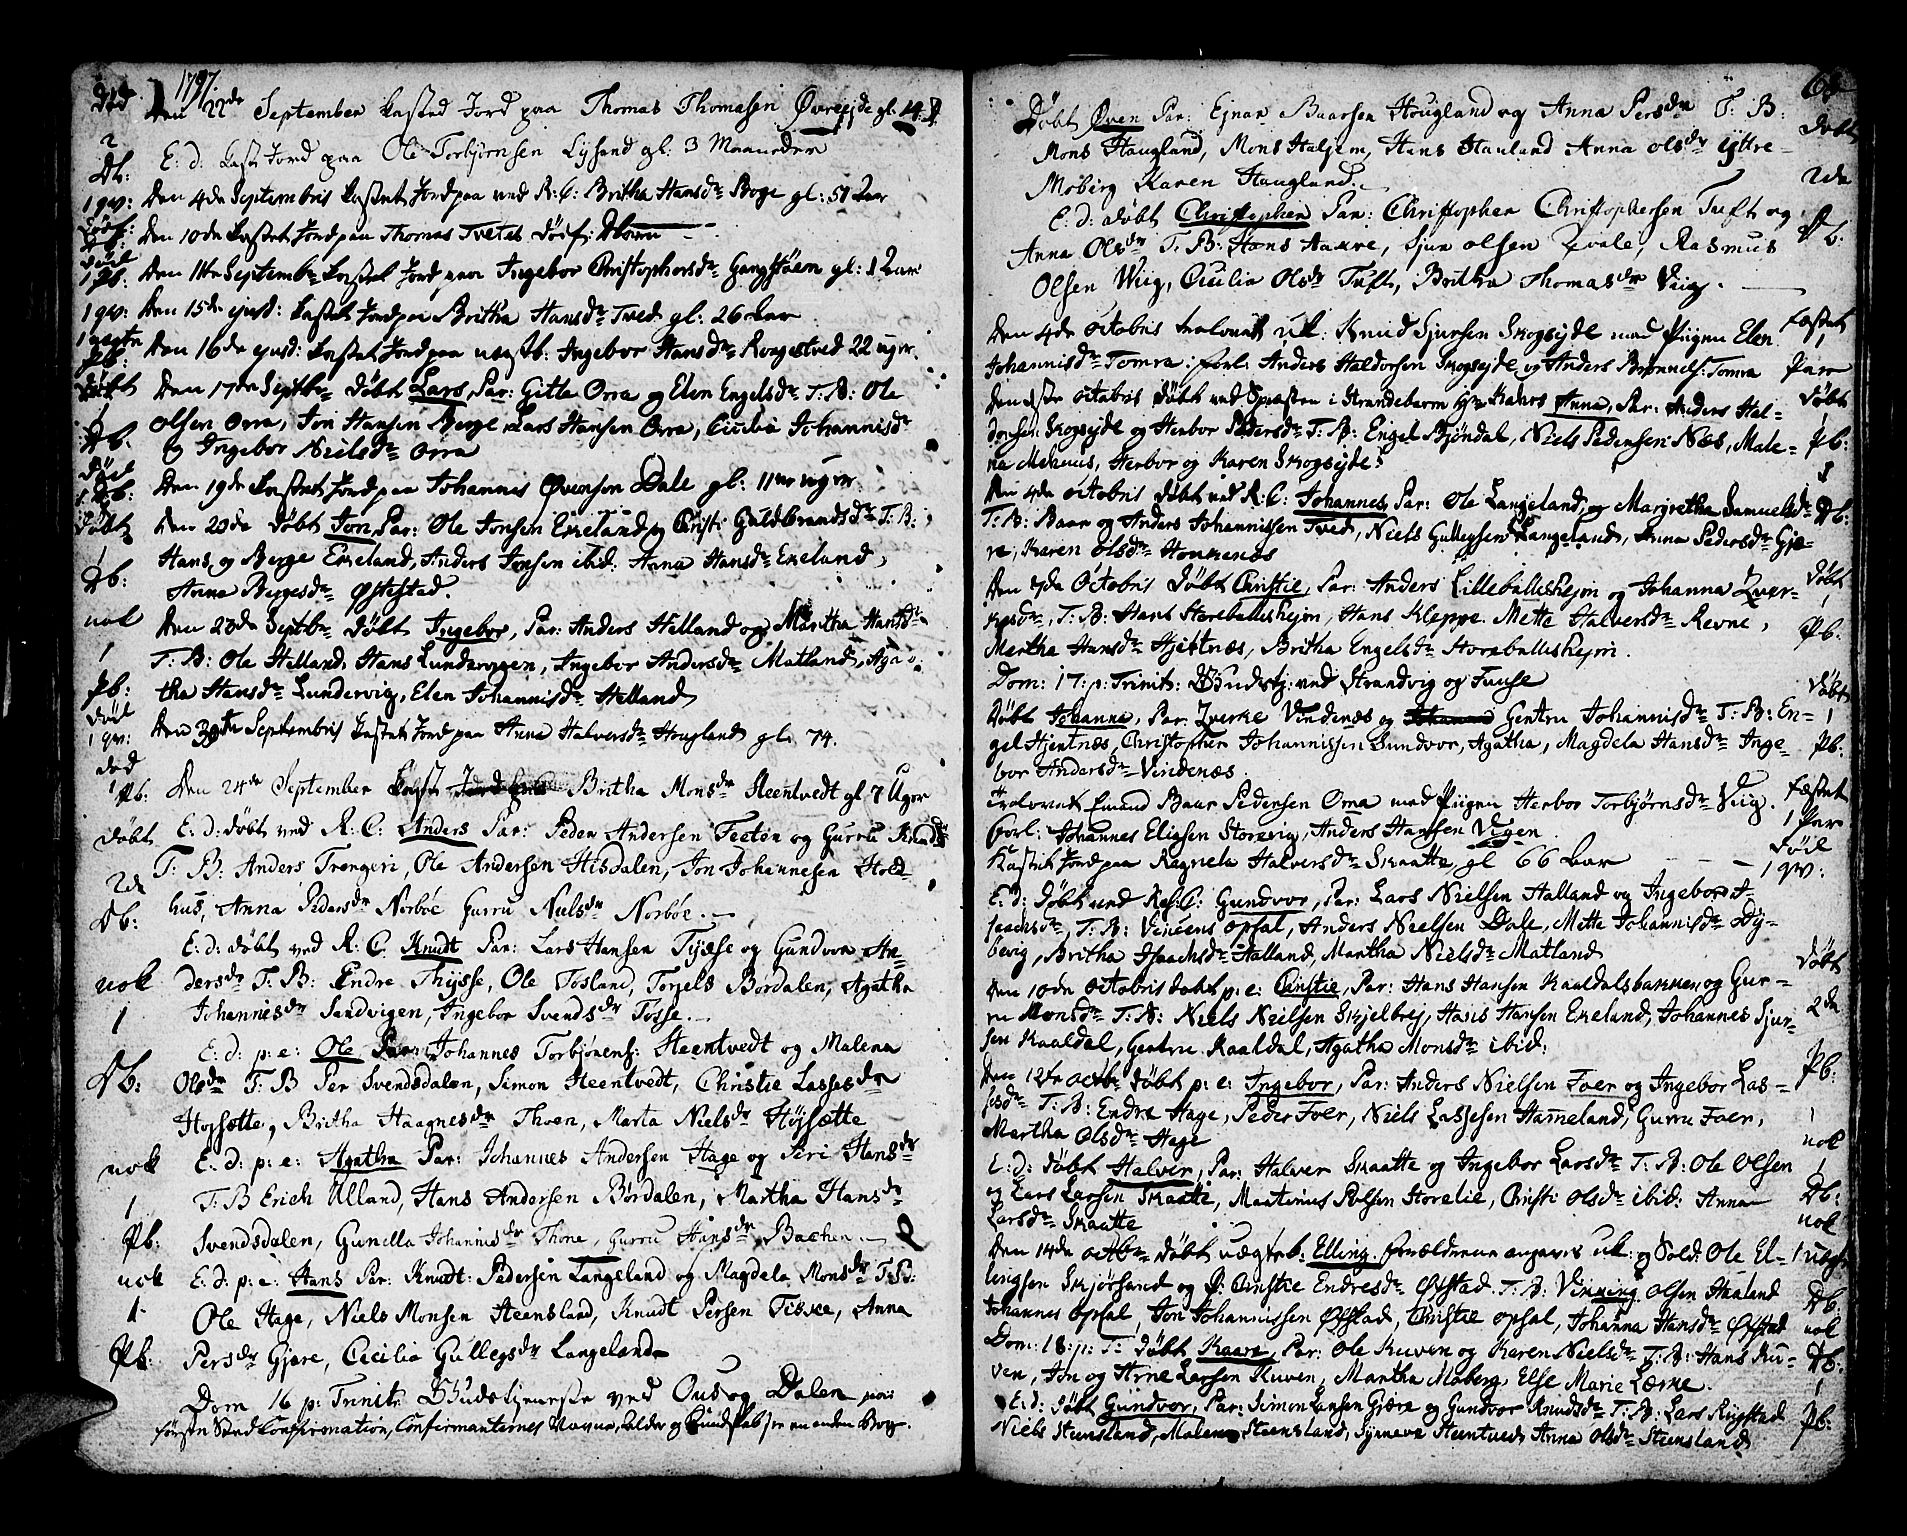 1797.
død Den 22de September kasted Jord paa Thomas Thomasen Øvreejde gl: 14
2 E: d: kast Jord paa Ole Torbjørnsen Lysand gl: 3 Maaneder
Db:
1 qv: Den 4de Septembris kastet Jord paa ved R: C: Britha Hansdr Boge gl: 51 Aar
Den 10de kastet Jord paa Thomas Tvetes
1 Pb: Den 11te Septembr kastet Jord paa Ingebor Christophersdr Gangstøen gl: 1 Aar
1 qv: Den 15de ejusd: kastet Jord paa Britha Hansdr Tved gl: 26 Aar
1 uægte Pb: Den 16de ejusd: kastet Jord paa uægtb: Ingebor Hansdr 22 uger.
Døbt Den 17de Septbr Døbt Lars, Par: Gitle Orra og Elen Engelsdr T: B: Ole
1 Olsen Orra, Jon Hansen Berge, Lars Hansen Orra, Cicilia Johannisdr
Db: og Ingebor Nielsdr Orra
Død
1 Db: Den 19de kastet Jord paa Johannis Øvensen Dale gl: 11 uger.
Døbt Den 20de Døbt Jon, Par: Ole Jonsen Ekeland og Christi Guldbrandsdr T: B:
1 Hans og Berge Ekeland, Anders Jonsen ibid. Anna Hansdr Ekeland,
Db: Anna Bergesdr Østestad.
nok Den 23de Septbr Døbt Ingebor, Par: Anders Helland og Maritha Hansdr
1 T: B: Ole Helland, Hans Lundervigen, Ingebor Andersdr Matland, Aga-
Pb: tha Hansdr Lundervig, Elen Johannisdr Helland
1 qv: Den 30te Septembris kastet Jord paa Anna Halversdr Hougland gl: 74.
død
1 Pb: Den 24de September kast Britha Monsdr Steentvedt gl 7 Uger
døbt E: d: døbt ved R: C: Anders Par: Peder Andersen Teeten og Gurru Knudsdr
T: B: Anders Trengeri, Ole Andersen Hisdalen, Jon Johannesen Hold-
Db: hus, Anna Pedersdr Norbøe Gurru Nielsdr Norbøe.
E: d: døbt ved R: C. Knudt Par: Lars Hansen Tysse og Gundvor An-
nok dersdr T: B: Endre Thysse, Ole Fosland, Torgels Børdalen, Agatha
1 Johannesdr Sandvigen, Ingebor Svendsdr Tosse.
E: d: p: e: Ole Par: Johannes Torbjønens: Steentvedt og Malena
Db: Olsdr T: B Per Svendsdalen, Simon Steentvedt, Christie Lassesdr
Høysætte, Britha Haagnesdr Thoen, Marta Nielsdr Høysætte
nok E: d: p: e: Agatha Par: Johannes Andersen Hage og Siri Hansdr
1 T: B Erich Ulland, Hans Andersen Børdalen, Martha Hansdr
Pb: Svendsdalen, Gunilla Johannisdr Thone, Gurru Hansdr Bachen.
nok E: d: p: e: Hans Par: Knudt Pedersen Langeland og Magdela Monsdr T: B:
1 Ole Hage, Niels Monsen Steensland, Knudt Persen Tiske, Anna
Pb: Persdr Gjøre, Cecilia Gullegsdr Langeland
Dom 16 p: Trinit: Gudstjeneste ved Ous og Dalen
første Confirmation, Confirmanternes Nagne, Alder og Kundskab see en anden Bog.
68
Døbt Øven Par: Ejnar Baarsen Hougland og Anna Persdr T: B: døbt
Mons Haugland, Mons Haljem, Hans Hauland Anna Olsdr Yttre- 2de
Møberg Karen Haugland.
E: d: døbt Christopher Par: Christopher Christophersen Tuft og
Anna Olsdr T: B: Hans Aakre, Sjur Olsen Qvale, Rasmus Db:
Olsen Wiig, Cicilia Olsdr Tuft, Britha Thomasdr Viig.
Den 4de Octobris trolovet uk: Knud Sjursen Skogsejde med Pigen Elen fæstet
Johannisdr Tomra. forl: Anders Haldorsen Skogsejde og Anders Brønnels: Tomra Par
Octobris Døbt ved Præsten i Strandebarm Anna, Par: Anders Hal- Døbt
dorsen Skogsejde og Herbor Pedersdr T: B: Engel Bjøndal, Niels Pedersen Næs, Male- Pb:
na Mehuus, Herbor og Karen Skogsejde.
Den 4de Octobris Døbt ved R: C: Johannes, Par: Ole Langeland, og Margretha Samuelsdr Db:
T: B: Baar og Anders Johannissen Tved, Niels Gullegsen Langeland, Anna Pedersdr Gjø-
re, Karen Olsdr
Den 7de Octobris Døbt Christie, Par: Anders Lilleballeshejm og Johanna Zver- Døbt
kesdr, T: B: Hans Storeballeshejm, Hans Kleppe, Mette Halversdr Revne, 1
Martha Hansdr Hjertnæs, Britha Engelsdr Storeballeshejm. Pb:
Dom: 17: p: Trinit: Gudstj: ved Strandvig og Fuuse
Døbt Johanna, Par: Zverke Vindenæs og Gertru Johannisdr T: B: En- Døbt 1
gel Hjertnæs, Christopher Johannissen Sundvor, Agatha, Magdela Hansdr Inge- Pb:
bor Andersdr Vindenæs.
Trolovet Baar Pedersen Orra med Pigen Herbor Torbjørnsdr Viig. Fæstet
Forl: Johannes Eliasen Storevig, Anders Hansen Vigen 1 Par
Kastet Jord paa Ragnela Halversdr Skaatte, gl 66 Aar 1 qv:
E: d: Døbt ved Res: C: Gundvor, Par: Lars Nielsen Halland og Ingebor I-
saachsdr, T: B: Vincens Opsal, Anders Nielsen Dale, Mette Johannisdr Dy-
bvig, Britha Isaachsdr Halland, Martha Nielsdr Matland
Den 10de Octobris døbt p: e: Christie, Par: Hans Hansen Kaaldalsbakken, og Gur- Døbt
ru Monsdr T: B: Niels Nielsen Skjelbrej, Hans Hansen Ekeland, Johannes Sjur- 2de
sen Kaaldal, Gertru Kaaldal, Agatha Monsdr ibid.
Den 12te Octbr Døbt p: e: Ingebor, Par: Anders Nielsen Foer og Ingebor Las- Pb:
sesdr T: B: Endre Hage, Peder Foer, Niels Lassesen Hammeland, Gurru Foer, 1
Martha Olsdr Hage nok
E: d: Døbt Halver, Par: Halver Skaatte og Ingebor Larsdr T: B: Ole Olsen 1
og Lars Larsen Skaatte, Martinus Storelie, Christi Olsdr ibid: Anna Db:
Larsdr Skaatte nok
Den 14de Octbr Døbt uægteb: Elling, forældrene angaves uk: og Sold: Ole El- 1 uægte
lingsen Skjørsand og P: Christie Endresdr Øfstad. T: B: Vinning Olsen Haaland Db.
Johannes Opsal, Jon Johannissen Øfstad, Christie Opsal, Johanna Hansdr Øfstad nok
Dom: 18: p: T: Døbt Kaare, Par: Ole Kuven og Karen Nielsdr T: B: Hans Ku- Db:
ven, Jon og Arne Larsen Kuven, Martha Møberg, Else Marie Lærke. 1
E: d: Døbt Gundvor, Par: Simon Larsen Gjøre og Gundvor Knudsdr T: B: Lars Rygstad Pb:
Niels Steensland, Malene Steensland, Synneve Steentved, Anna Olsdr Steensland